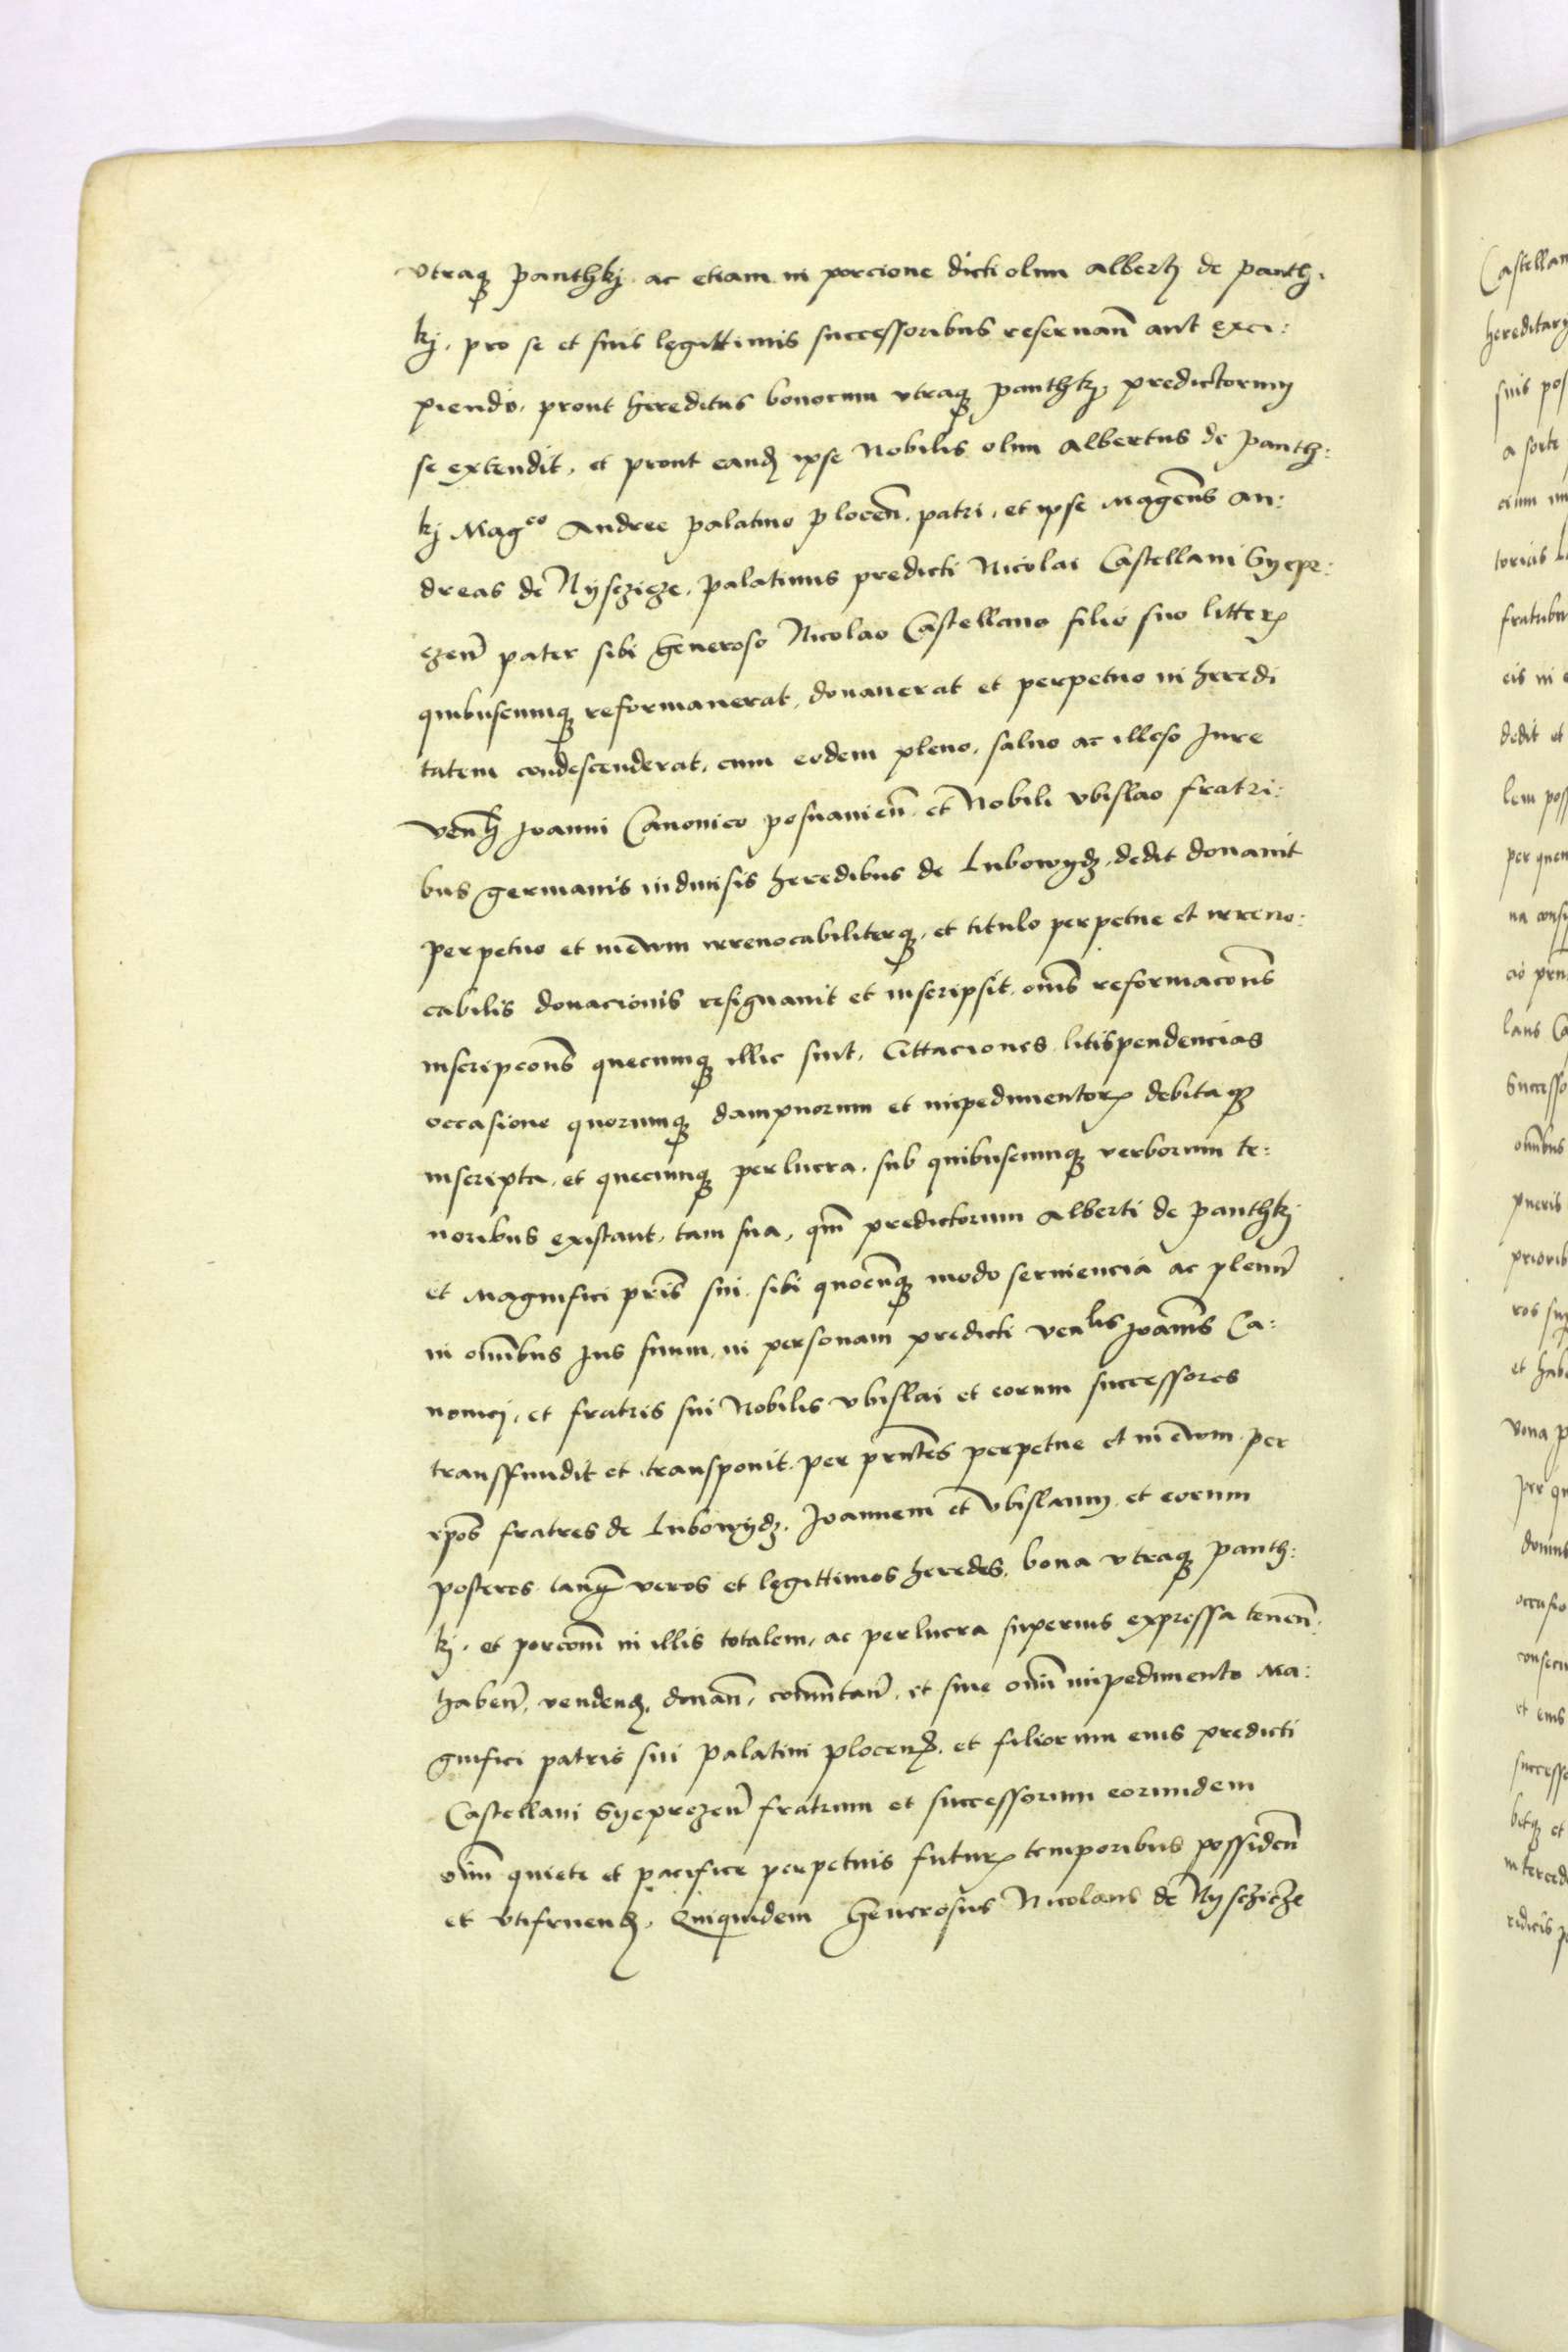 vtraq panthkj ac etiam in porcione dicti olim alberti de panth.
kj. pro se et suis legittimis successoribus reseruan̄ aut exci:
piendo. prout hereditas bonorum vtraq panthkj, predictorum
se extendit, et prout eand ipse Nobilis olim Albertus de panth:
kj Magco Andree palatino plocen̄. patri, et ipse Magcus An:
dreas de Nysczicze. palatinus predicti Nicolai Castellani Syepr:
czen̄ pater sibi Generoso Nicolao Castellano filio suo litter
quibuscumq reformauerat, donauerat et perpetuo in heredi
tatem condescenderat, cum eodem pleno, saluo ac illeso Jure
venli Joanni Canonico posnanien̄. et Nobili vbislao fratri:
bus germanis indiuisis heredibus de Lubowydz, dedit donauit
perpetuo et in ewm irreuocabiliterq, et titulo perpetue et irreuo:
cabilis donacionis resignauit et inscripsit. om̄s reformacōns
inscripcōns quecumq illic sint, Cittaciones litispendencias
occasione quorumq dampnorum et impedimentor debitaq
inscripta, et quecumq perlucra. sub quibuscumq verborum te:
noribus existant, tam sua, qm̄ predictorum Alberti de panthkj
et Magnifici pr̄is sui sibi quocūq modo seruiencia ac plenu
in omibus Jus suum, in personam predicti venlis Joannis Ca:
nonicj, et fratris sui Nobilis vbislai et eorum successores
transfundit et transponit. per prn̄tes perpetue et in ewm. per
ipos fratres de Lubowydz. Joannem et vbislaum, et eorum
posteros tanq veros et legittimos heredes. bona vtraq panth:
kj. et porcōm in illis totalem, ac perlucra superius expressa tenen̄.
haben̄. vendend. donan̄, commutan̄. et sine omi impedimento Ma:
gnifici patris sui palatini plocen. et filiorum eius predicti
Castellani Syeprczen̄ fratrum et successorum eorundem
oīm quiete et pacifice perpetuis futur temporibus possiden̄
et vtifruend. Quiquidem Generosus Nicolaus de Nyscziczie